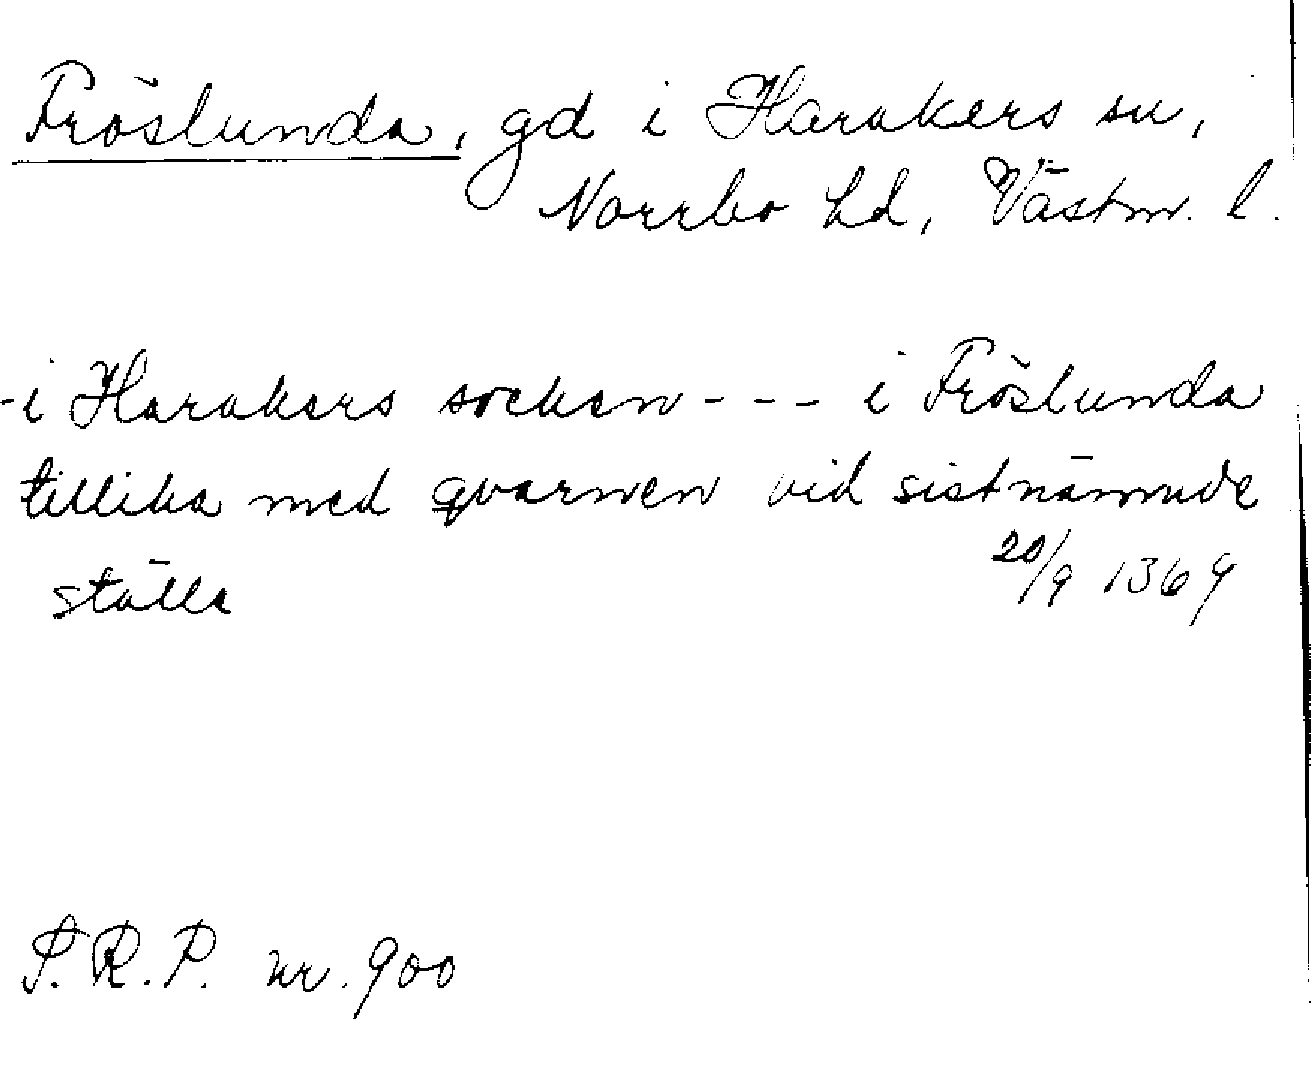 Fröslunda, gd i Harakers sn,
Norrbo hd, Västm. l.
-i Harakers socken --- i Fröslunda
tillika med qvarnen vid sistnämnde
ställe
20/9 1369
S.R.P. nr. 900